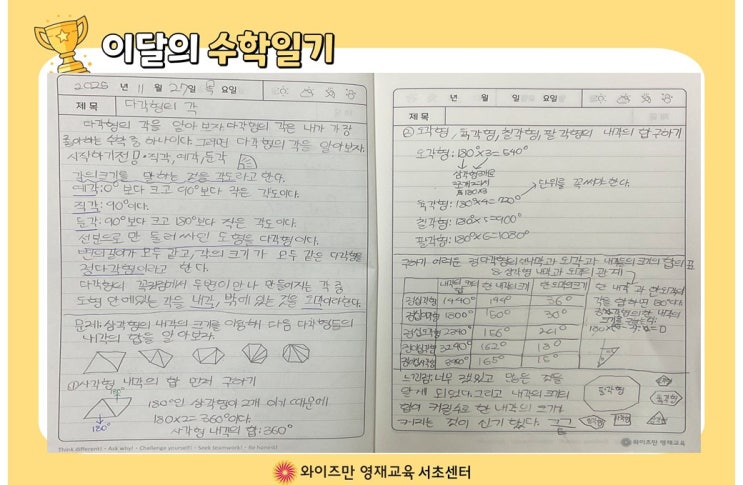 이달의 수학일기
2025 년 11 월 27일 목 요일
제 목 다각형의 각
다각형의 각을 알아보자 다각형의 각은 내가 가장
좋아하는 수학 중 하나이다. 그러면 다각형의 각을 알아보자.
시작하기전 직각, 예각, 둔각
각의크기를 말하는 것을 각도라고 한다.
예각: 0°보다 크고 90°보다 작은 각도이다.
직각: 90°이다.
둔각: 90°보다 크고 180°보다 작은 각도이다.
선분으로 만 둘러 싸인 도형을 다각형이다.
변의길이가 모두 같고, 각의 크기가 모두 같은 다각형을
정다각형이라고 한다.
다각형의 꼭짓점에서 두변이 만나 만들어지는 각 중
도형 안에있는 각을 내각, 밖에 있는 것을
문제: 삼각형의 내각의 크기를 이용해 다음 다각형들의
내각의 합을 알아보자.
①사각형 내각의 합 먼저 구하기
180°
180°
180°인 삼각형이 2개 이기 때문에
180×2=360°이다.
사각형 내각의 합: 360°
Think different! - Ask why! - Challenge yourself! - Seek teamwork! - Be honest!
년 월 일 요일
제 목
② 오각형, 육각형, 칠각형, 팔각형의 내각의 합 구하기
오각형: 180°×3=540°
단위를 꼭 써야 한다.
육각형: 180°×4=720°
칠각형: 180°×5=900°
팔각형: 180°×6=1080°
구하기 어려운 정다각형의 한내각과 외각과 내각들의 크기의 합의 표
& 삼각형 내각과 외각의 관계
한 내각의 크기 한 외각의크기
1440° 144° 36°
1800° 150° 30°
156°
162° 18°
165° 15°
한 내각과 한외각의
각을 합하면 180°이다.
느낀점: 너무 재밌었고 많은 것을
알게 되었다. 그리고 내각의 크기의
합이 커질수록 한 내각의 크기가
커지는 것이 신기 했다. 끝
팔각형
육각형
와이즈만 영재교육
와이즈만 영재교육 서초센터